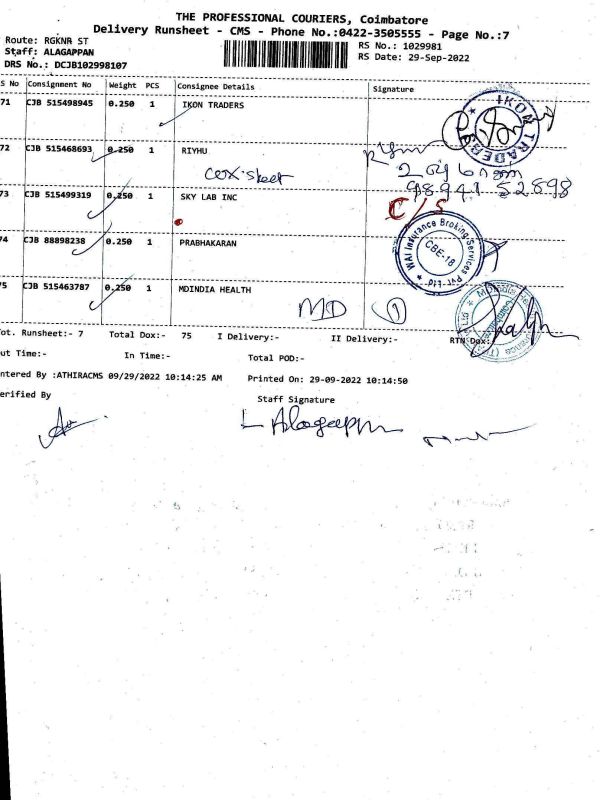 THE PROFESSIONAL COURIERS, Coimbatore
Delivery Runsheet - CMS - Phone No.:0422-3505555 - Page No.:7
Route: RGKNR ST
Staff: ALAGAPPAN
DRS No.: DCJB102998107
RS No.: 1029981
RS Date: 29-Sep-2022
S No Consignment No Weight PCS Consignee Details Signature
71 CJB 515498945 0.250 1 IKON TRADERS
IKON TRADERS
72 CJB 515468693 0.250 1 RIYHU
98941 52898
73 CJB 515499319 0.250 1 SKY LAB INC
C/S
74 CJB 88898238 0.250 1 PRABHAKARAN
WAI Insurance Broking Services Pvt Ltd
CBE-18
75 CJB 515463787 0.250 1 MDINDIA HEALTH
MD 1
ot. Runsheet:- 7 Total Dox:- 75 I Delivery:- II Delivery:- RTN Dox:
ut Time:- In Time:- Total POD:-
ntered By :ATHIRACMS 09/29/2022 10:14:25 AM Printed On: 29-09-2022 10:14:50
erified By Staff Signature
Alagappn